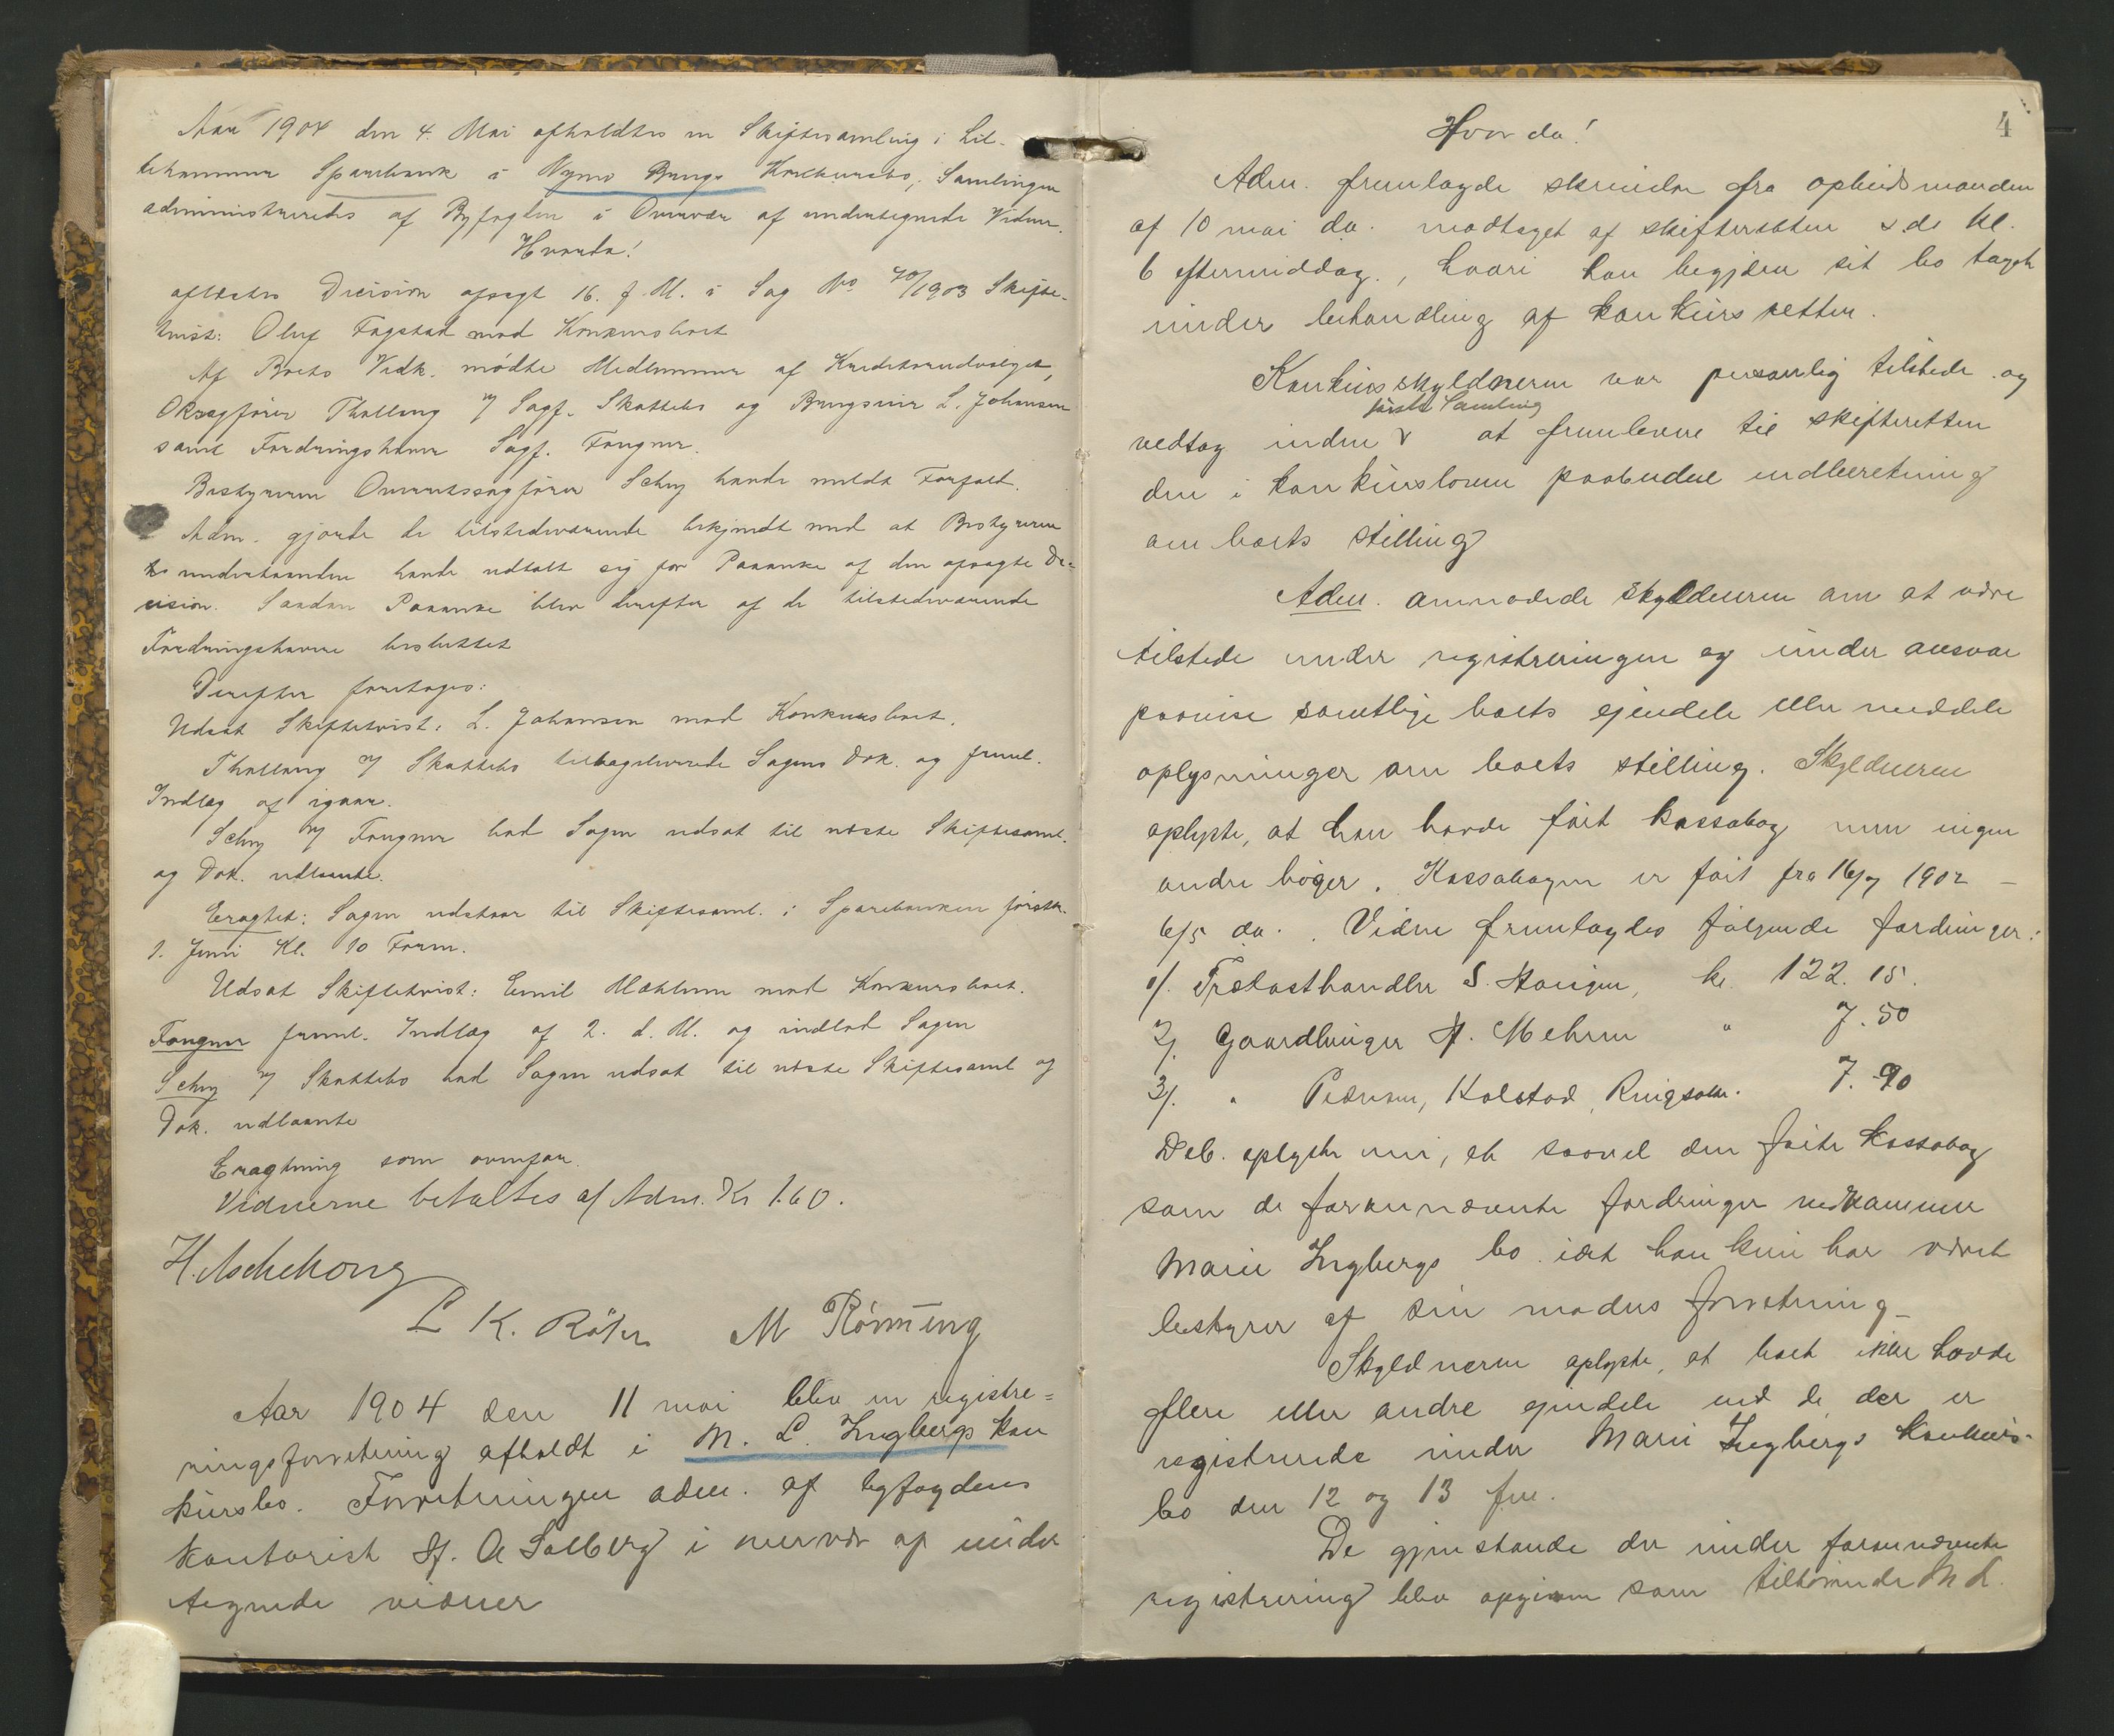 Aar 1904 den 4. Mai afholdtes en Skiftesamling i Lil-
lehammer Sparebank i Nymo Brugs Konkursbo; Samlingen
administreredes af Byfogden i Overvær af undertegnede Vidner.
Hvorda!
aflæstes Decision afsagt 16. f. M. i Sag No 40/1903 Skifte-
tvist: Oluf Fagstad mod Konkursboet
Af Boets Vedk. mødte Medlemmer af Kreditorudvalget,
ORsagfører Thallaug v/ Sagf. Skattebo og Brugseier L. Johansen
samt Fordringshaver Sagf. Fougner.
Bestyreren Overretssagfører Schey havde meldt Forfald.
Adm. gjorde de tilstedeværende bekjendt med at Bestyreren
underhaanden havde udtalt sig for Paaanke af den afsagte De-
cision. Saadan Paaanke blev derefter af de tilstedeværende
Fordringshavere besluttet
Derefter foretoges:
Udsat Skiftetvist: L. Johansen mod Konkursboet.
Thallaug v/ Skattebo tilbageleverede Sagens Dok. og freml.
Indlæg af igaar.
Schey v/ Fougner bad Sagen udsat til næste Skiftesaml.
og Dok. udlaante.
Eragtet: Sagen udstaar til Skiftesaml. i Sparebanken førstk.
1. Juni Kl. 10 Form.
Udsat Skiftetvist: Emil Mæhlum mod Konkursboet.
Fougner freml. Indlæg af 2. d. M. og indlod Sagen
Schey v/ Skattebo bad Sagen udsat til næste Skiftesaml og
Dok. udlaante
Eragtning som ovenfor.
Vidnerne betaltes af Adm. Kr 1.60.
H. Aschehoug
L K. Röhr M Rönning
Aar 1904 den 11 mai blev en registre=
ringsforretning afholdt i M. L. Ingbergs kon
kursbo. Forretningen adm. af byfogdens
kontorist H. A Solberg i overvær af under
tegnede vidner
4
Hvor da!
Adm. fremlagde skrivelse fra opbudsmanden
af 10 mai da. modtaget af skifteretten s. d. kl.
6 eftermiddag., hvori han begjærer sit bo taget
under behandling af konkursretten.
Konkursskyldneren var personlig tilstede og
første Samling
vedtog inden v at fremlevere til skifteretten
den i konkursloven paabudne indberetning
om boets stilling
Adm. anmodede skyldneren om at være
tilstede under registreringen og under ansvar
paavise samtlige boets ejendele eller meddele
oplysninger om boets stilling. Skyldneren
oplyste, at han havde ført kassabog men ingen
andre bøger. Kassabogen er ført fra 16/7 1902 –
6/5 da. Videre fremlagdes følgende fordringer:
1/. Trælasthandler S. Haugen, kr. 122. 15.
2/. Gaardbruger H. Mehren " 7. 50
3/. " Pedersen, Kolstad, Ringsaker. 7. 90
Deb. oplyste nu, at saavel den førte kassabog
som de forannævnte fordringer vedkommer
Marie Ingbergs bo idet han kun har været
bestyrer af sin moders forretning_
Skyldneren oplyste, at boet ikke havde
flere eller andre ejendele end de der er
registrerede under Marie Ingbergs konkurs-
bo den 12 og 13 fm.
De gjenstande der under forannævnte
registrering blev opgivne som tilhørende M L.